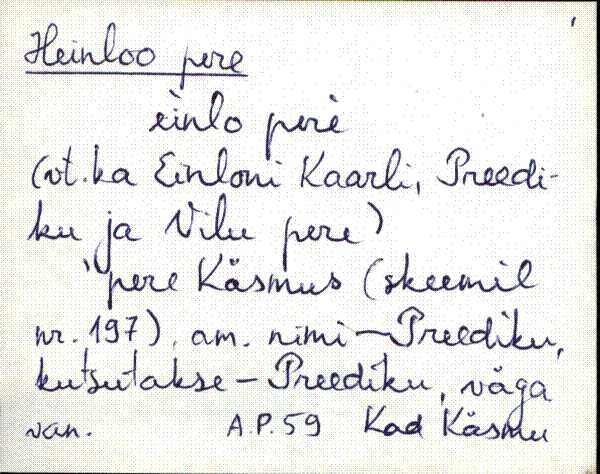 Heinloo pere
èinlo perè
(vt. ka Einloni Kaarli, Preedi-
ku ja Vilu pere)
"pere Käsmus (skeemil
nr. 197), am. nimi – Preediku,
kutsutakse – Preediku, väga
van. A.P. 59 Kad Käsmu